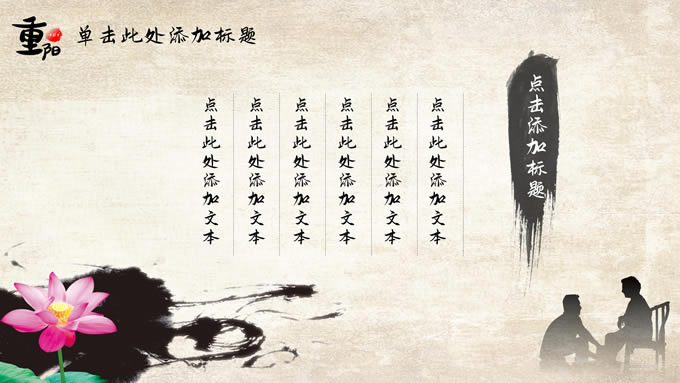 重阳
单击此处添加标题
点击添加标题
点击此处添加文本
点击此处添加文本
点击此处添加文本
点击此处添加文本
点击此处添加文本
点击此处添加文本